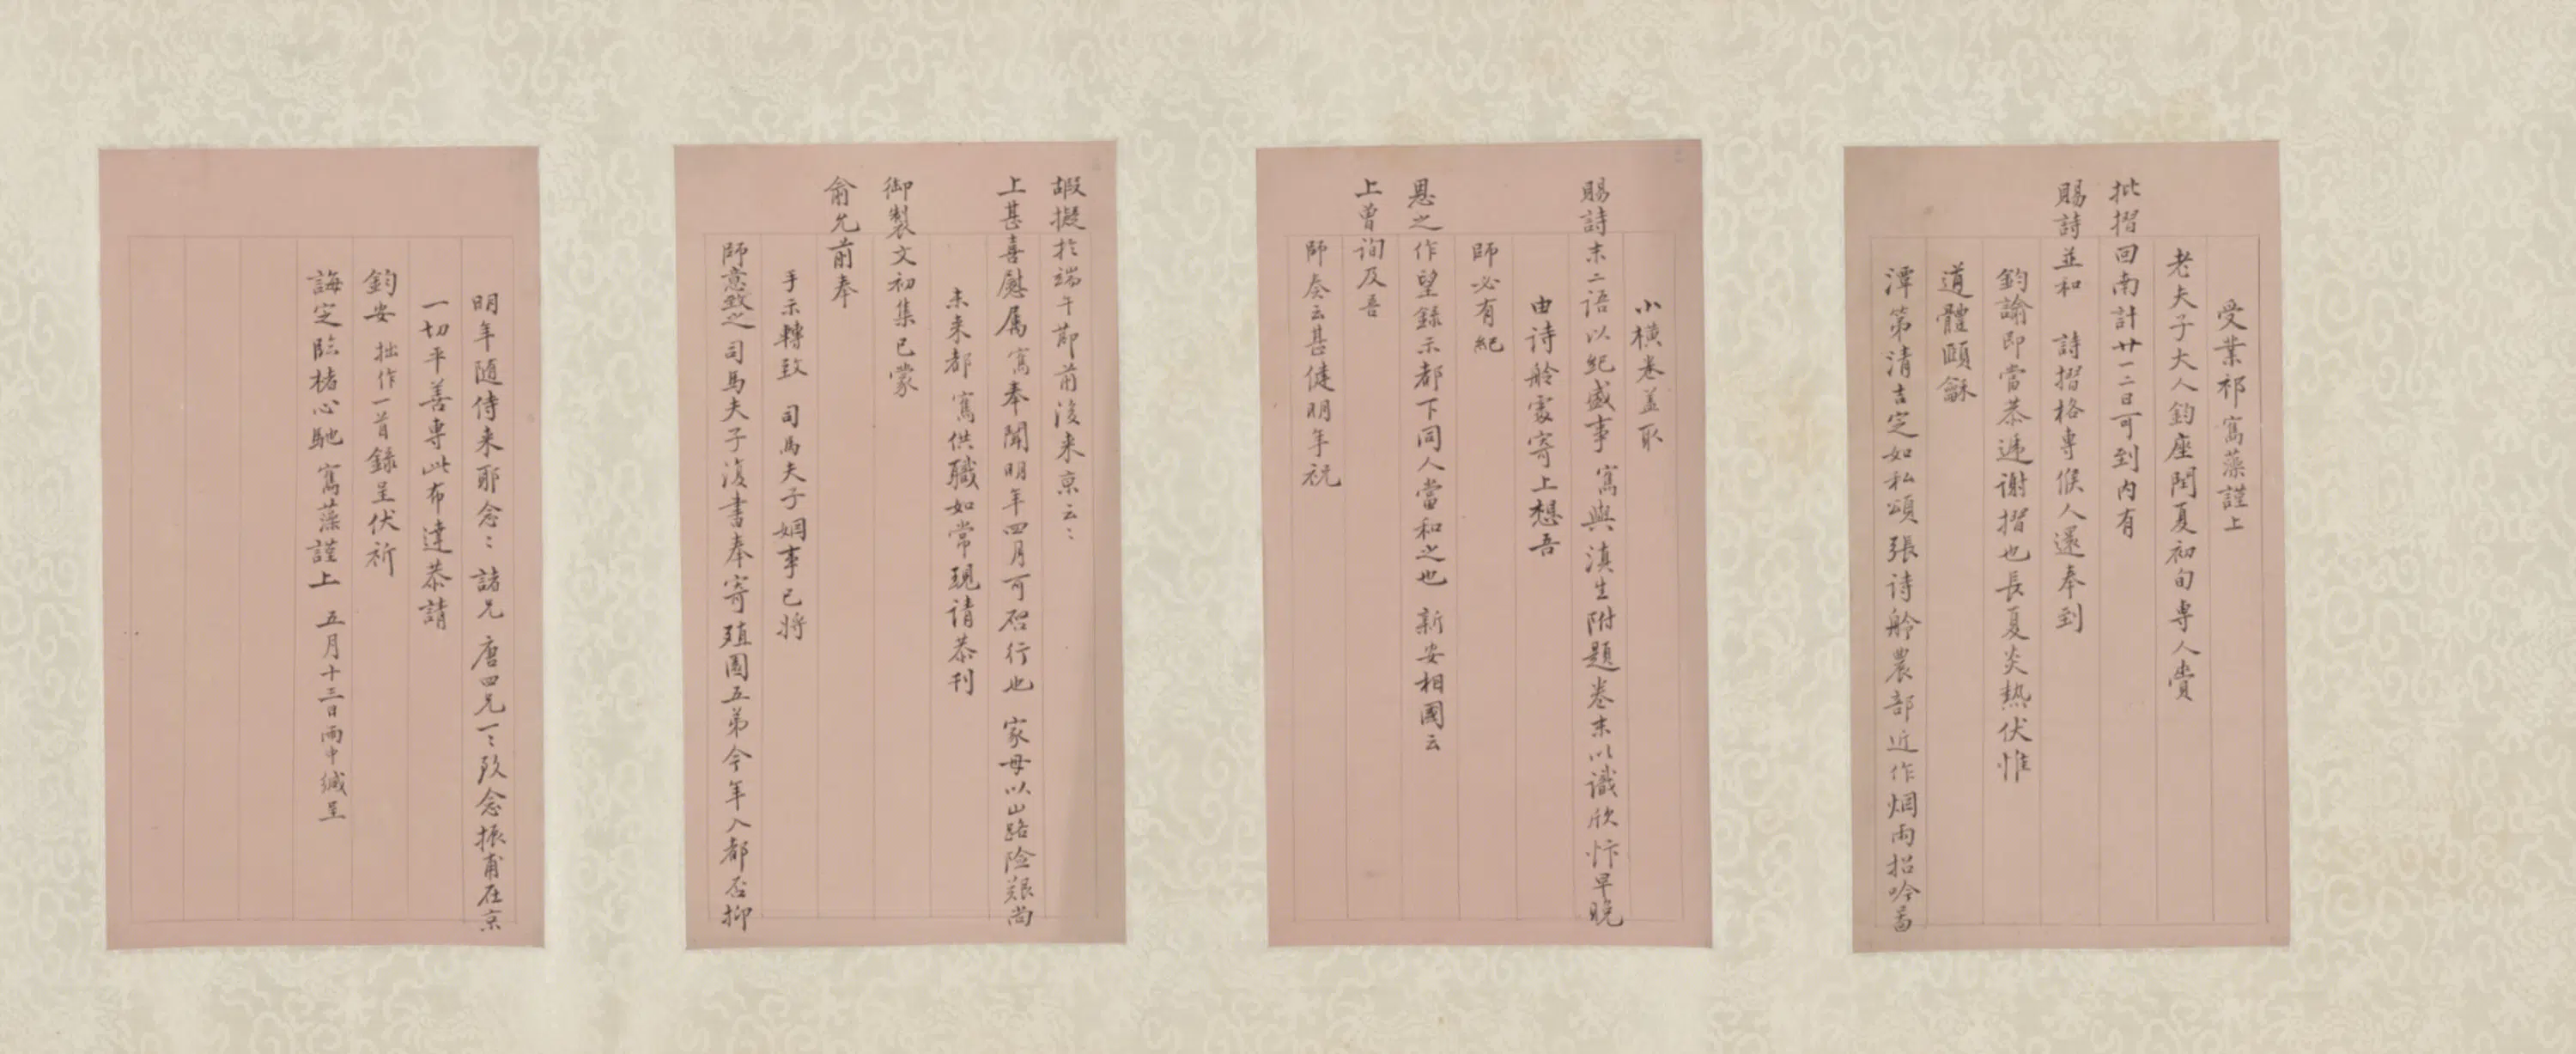 受業祁寯藻謹上
老夫子大人鈞座閏夏初旬専人賫
批摺回南計廿一二日可到内有
賜詩並和 詩摺格専候人還奉到
鈞諭即當恭遞谢摺也長夏炎熱伏惟
道體頤龢
潭第清吉定如私頌張诗舲農部近作烟雨招吟圖
小横卷蓋取
賜詩末二语以紀盛事寯與滇生附題卷末以識欣忭早晚
由诗舲處寄上想吾
師必有紀
恩之作望録示都下同人當和之也 新安相國云
上曾询及吾
師奏云甚健明年祝
嘏擬扵端午節前後来京云〻
上甚喜慰属寯奉聞明年四月可啓行也 家母以山路险艱尚
未来都 寯供職如常現请恭刊
御製文初集已蒙
俞允前奉
手示轉致 司馬夫子姻事已将
師意致之司馬夫子復書奉寄殖園五弟今年入都否抑
明年随侍来耶念〻諸兄 唐四兄一〻致念振甫在京
一切平善専此布達恭請
鈞安 拙作一首録呈伏祈
誨定臨楮心馳 寯藻謹上 五月十三日雨中緘呈